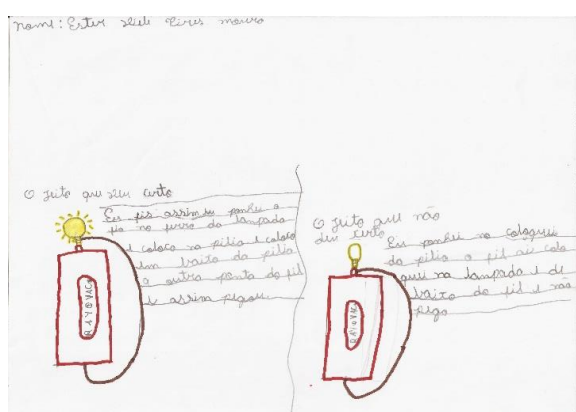 nome: Ester Pires mouro
O jeito que deu certo
Eu fis assim eu ponhei o
fio no ferro da lampada
e coloco na pilia e coloco
em baixo da pilia
a outra ponta do fil
e assim pegou.
RAYOVAC
O jeito que não
deu certo
Eu ponhei no
da pilia o fil ai colo
quei na lampada e de
baixo do fil e nao
pego
RAYOVAC